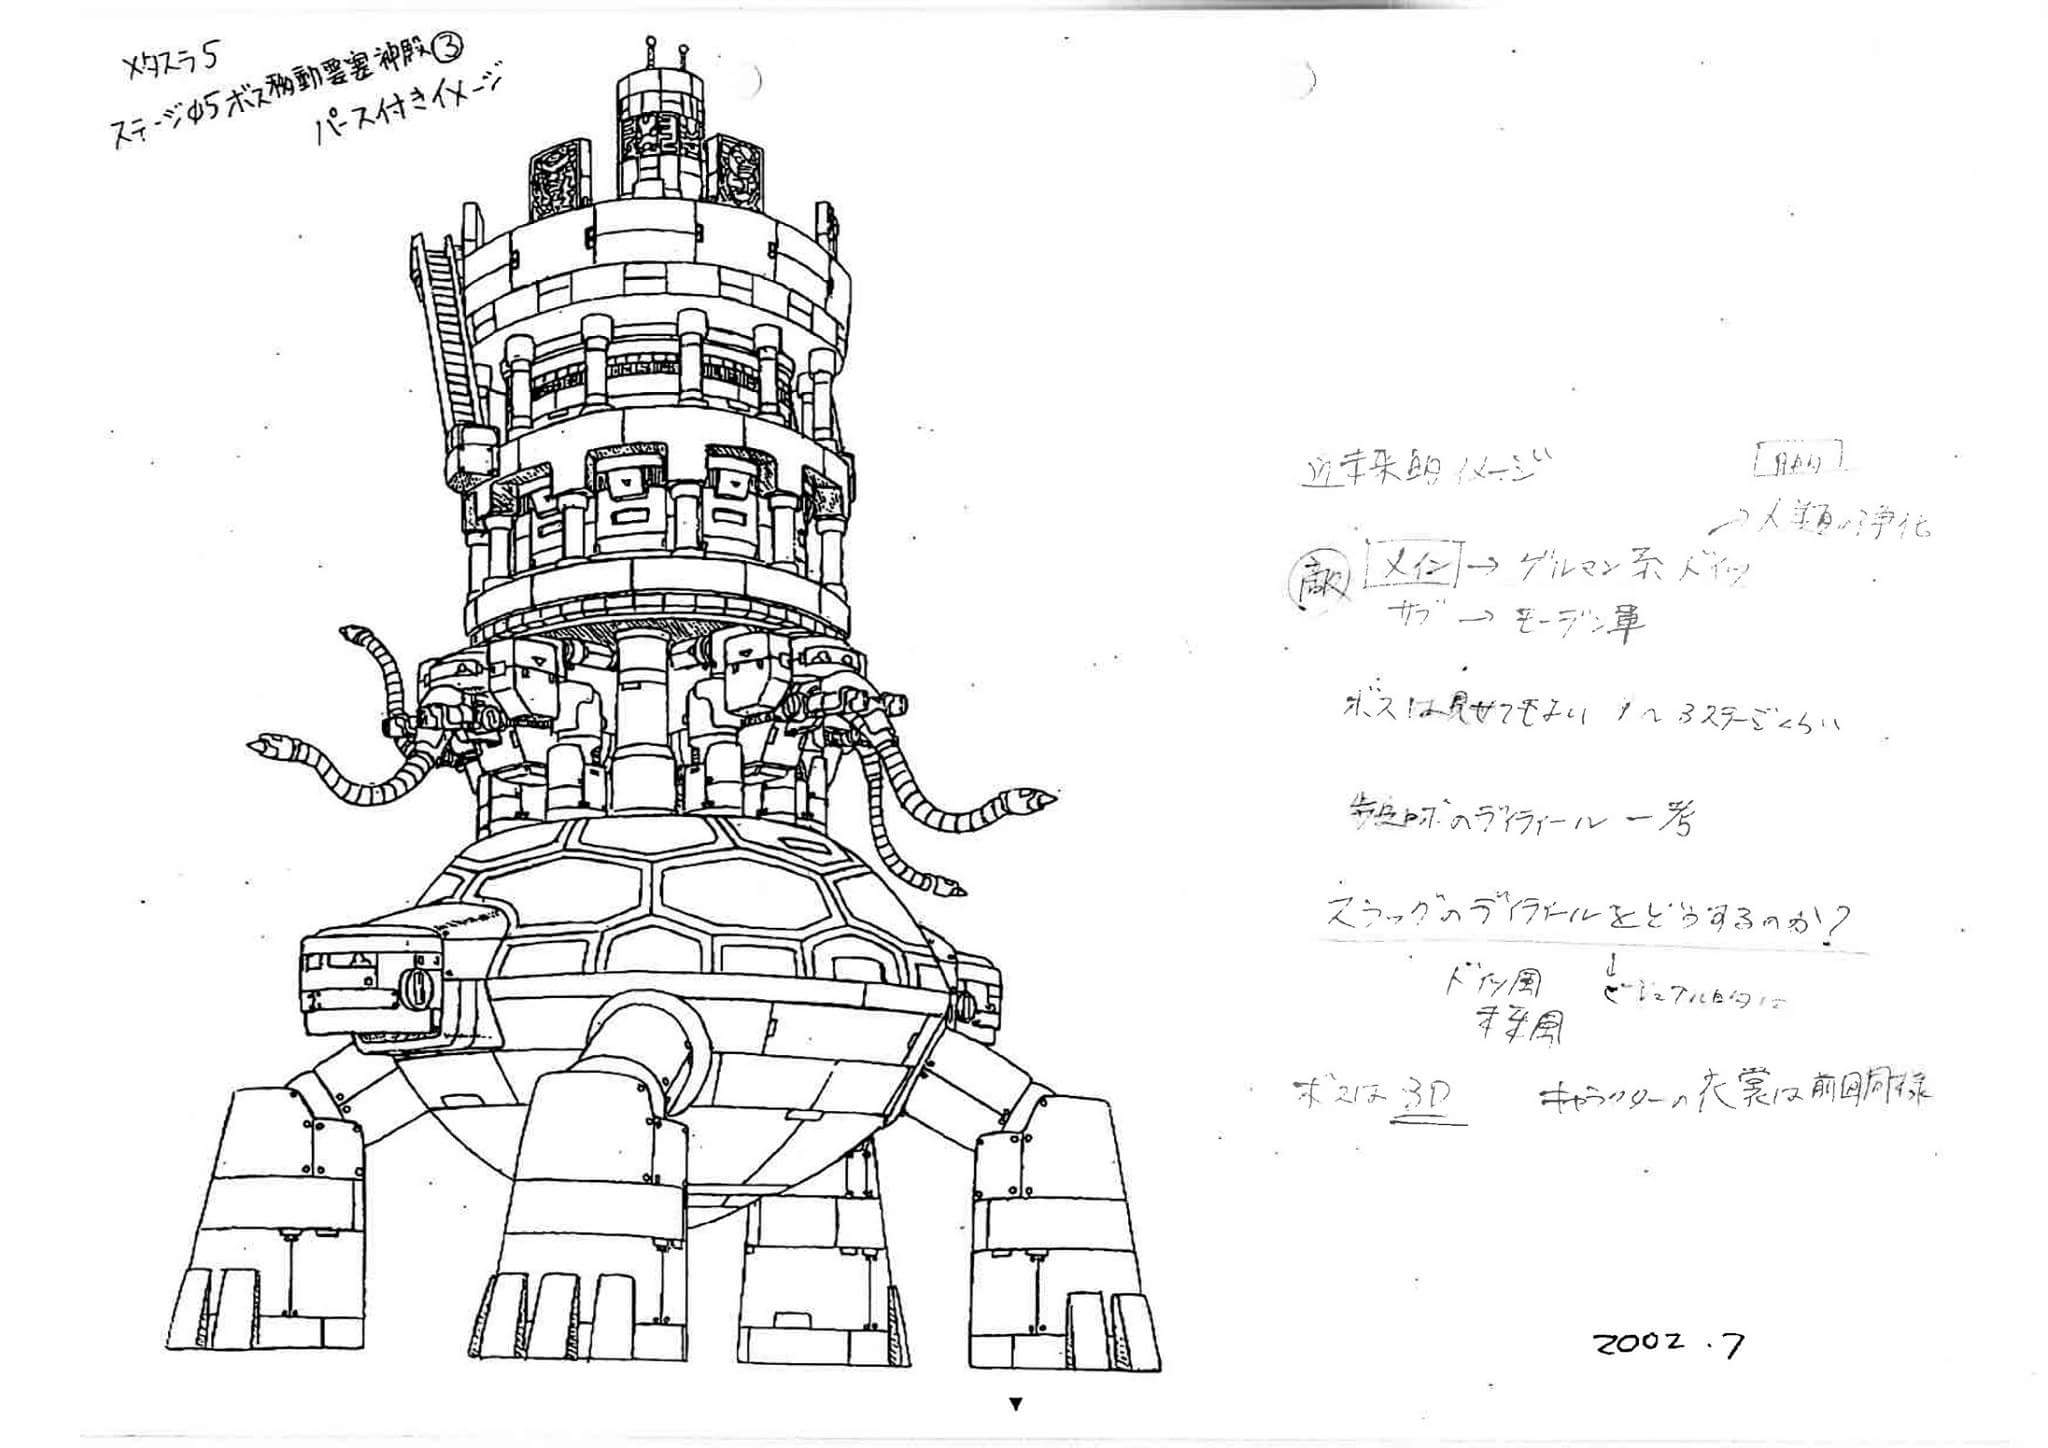 メタスラ5
ステージ05ボス移動要塞神殿③
パース付きイメージ
近未来的イメージ
目的
→人類の浄化
敵 メイン→ゲルマン系ドイツ
サブ→モーデン軍
ボスは見せてもよい 1~3ステージくらい
ロボのディティール一考
スラッグのディティールをどうするのか?
ドイツ風 ↓ビジュアル的に
未来風
ボスは3D キャラクターの衣裳は前回同様
2002.7